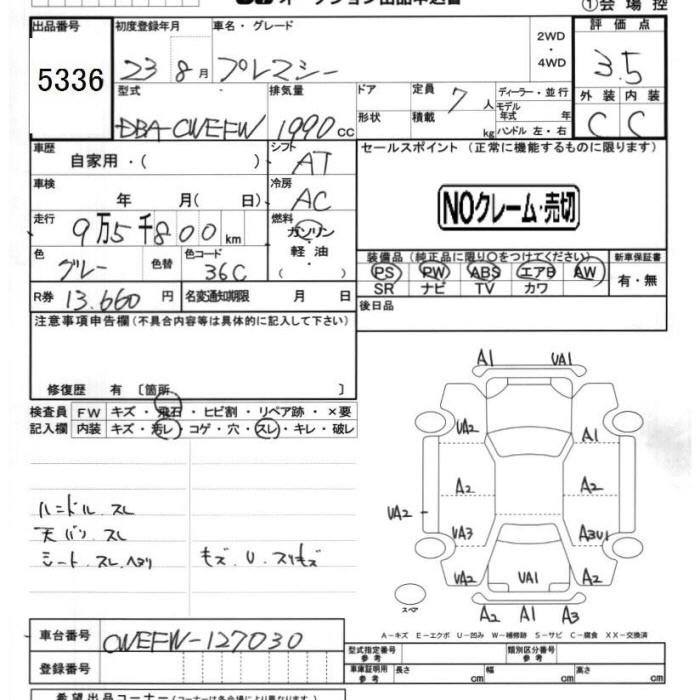 ①会場控
出品番号
初度登録年月
車名・グレード
2WD
・
4WD
評価点
5336
23 8月
プレマシー
3.5
型式
排気量
ドア
定員 7人
ディーラー・並行
外装
内装
形状
積載 kg
モデル年式 年
ハンドル 左・右
DBA-CWEFW
1990 cc
C
C
車歴
自家用・( )
シフト
AT
セールスポイント (正常に機能するものに限ります)
車検
年 月( 日)
冷房
AC
NOクレーム・売切
走行
9万5千800km
燃料
ガソリン
・
軽油
・
( )
色
グレー
色替
色コード
36C
装備品 (純正品に限り〇をつけてください)
新車保証書
PS PW ABS エアB AW
有・無
SR ナビ TV カワ
R券 13.660円
名変通知期限 月 日
後日品
注意事項申告欄 (不具合内容等は具体的に記入して下さい)
修復歴 有 〔箇所 〕
検査員
FW
キズ・飛石・ヒビ割・リペア跡・×要
記入欄
内装
キズ・汚レ・コゲ・穴・スレ・キレ・破レ
ハンドル スレ
天バリ スレ
シート スレ ヘタリ
キズ U スリキズ
A1 UA1
UA2 A1
A2 A2
UA2
UA3 A3U1
UA2 UA1 A2
スペア
A2 A1 A3
A-キズ E-エクボ U-凹み W-補修跡 S-サビ C-腐食 XX-交換済
車台番号
CWEFW-127030
型式指定番号
参考
類別区分番号
参考
登録番号
車庫証明
参考
長さ cm 幅 cm 高さ cm
希望出品コーナー